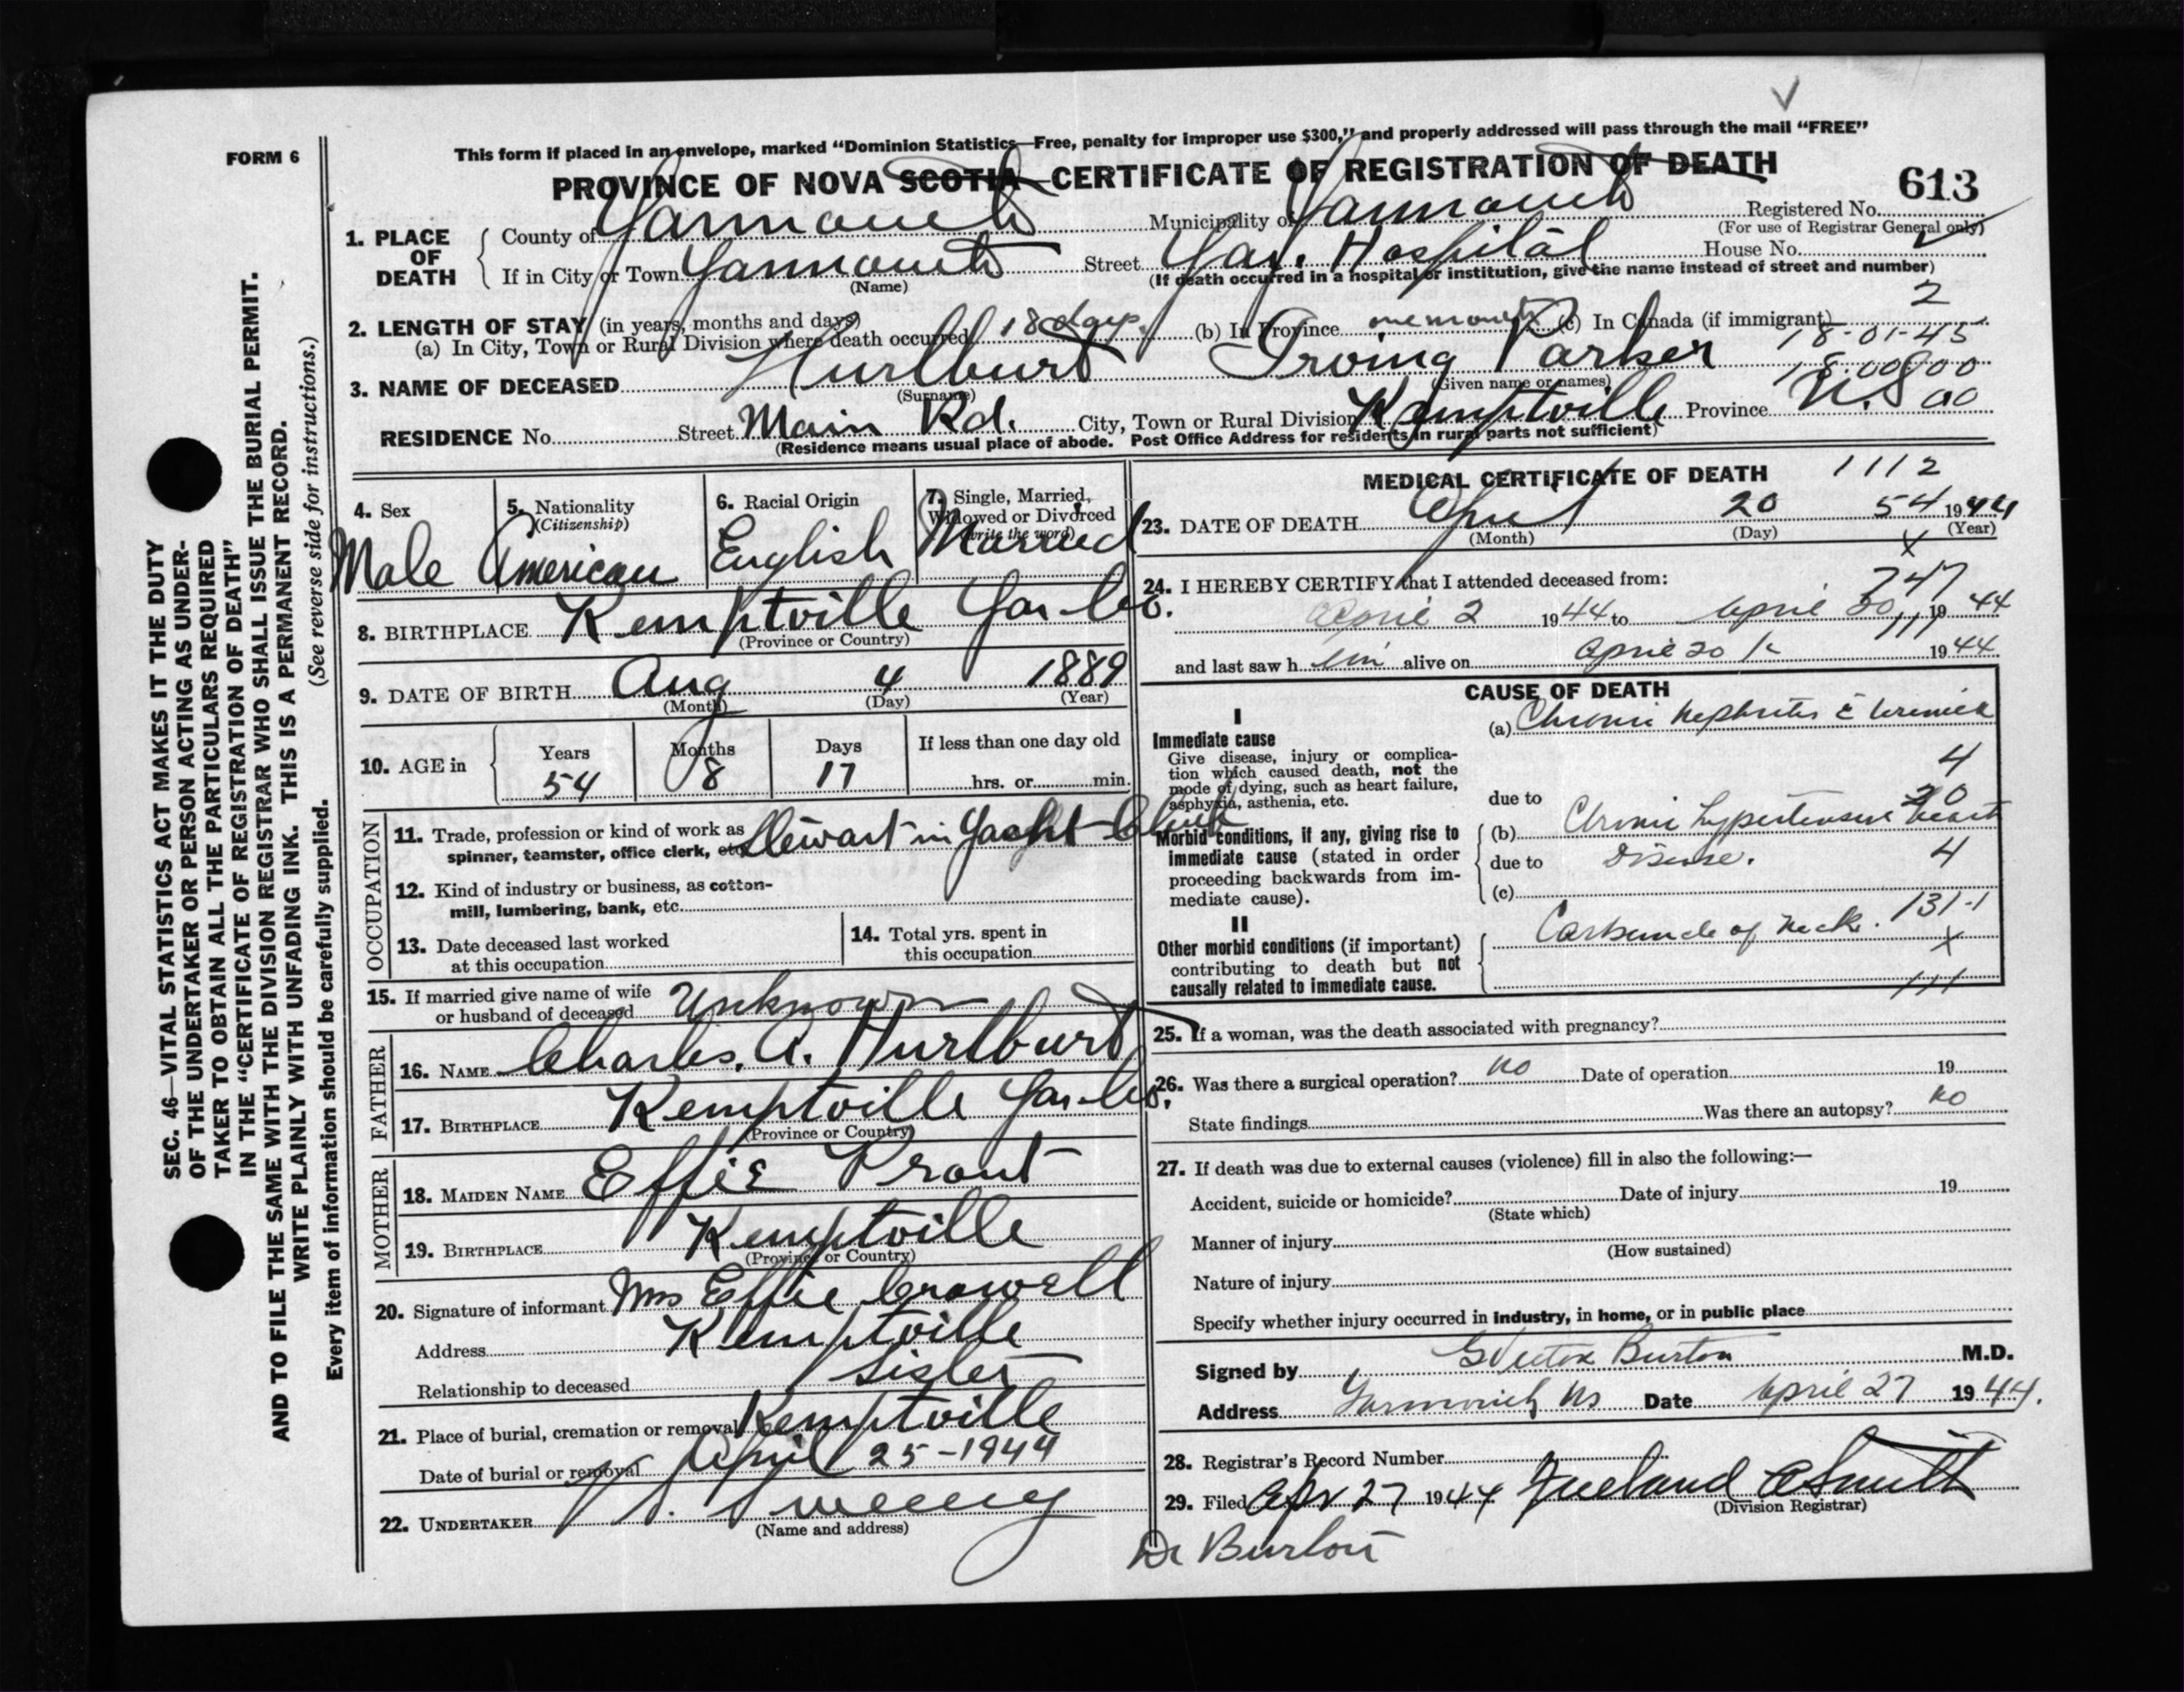 This form if placed in an envelope, marked "Dominion Statistics—Free, penalty for improper use $300," and properly addressed will pass through the mail "FREE"
FORM 6
PROVINCE OF NOVA SCOTIA—CERTIFICATE OF REGISTRATION OF DEATH
613
Registered No.
(For use of Registrar General only)
1. PLACE OF DEATH
County of Yarmouth Municipality of Yarmouth
If in City or Town Yarmouth Street Yar. Hospital House No.
(Name) (If death occurred in a hospital or institution, give the name instead of street and number)
2
2. LENGTH OF STAY (in years, months and days)
(a) In City, Town or Rural Division where death occurred 18 days. (b) In Province one month (c) In Canada (if immigrant)
18-01-45
3. NAME OF DECEASED Hurlburt Irving Parker
(Surname) (Given name or names)
RESIDENCE No. Street Main Rd. City, Town or Rural Division Kemptville Province N.S
(Residence means usual place of abode. Post Office Address for residents in rural parts not sufficient)
4. Sex
Male
5. Nationality
(Citizenship)
American
6. Racial Origin
English
7. Single, Married, Widowed or Divorced
(write the word)
Married
8. BIRTHPLACE Kemptville Yar. Co.
(Province or Country)
9. DATE OF BIRTH Aug 4 1889
(Month) (Day) (Year)
10. AGE in
Years Months Days If less than one day old
54 8 17 hrs. or min.
OCCUPATION
11. Trade, profession or kind of work as
spinner, teamster, office clerk, etc. Stewart in Yacht Club
12. Kind of industry or business, as cotton-
mill, lumbering, bank, etc.
13. Date deceased last worked
at this occupation
14. Total yrs. spent in
this occupation
15. If married give name of wife
or husband of deceased Unknown
FATHER
16. NAME Charles. A. Hurlburt
17. BIRTHPLACE Kemptville Yar. Co.
(Province or Country)
MOTHER
18. MAIDEN NAME Effie Prout
19. BIRTHPLACE Kemptville
(Province or Country)
20. Signature of informant Mrs Effie Crowell
Address Kemptville
Relationship to deceased Sister
21. Place of burial, cremation or removal Kemptville
Date of burial or removal April 25-1944
22. UNDERTAKER V. S. Sweeny
(Name and address)
MEDICAL CERTIFICATE OF DEATH 1112
23. DATE OF DEATH April 20 54 1944
(Month) (Day) (Year)
X
24. I HEREBY CERTIFY that I attended deceased from:
747
April 2 1944 to April 20 1944
111
and last saw him alive on April 20 1944
CAUSE OF DEATH
I
Immediate cause
Give disease, injury or complica-
tion which caused death, not the
mode of dying, such as heart failure,
asphyxia, asthenia, etc.
(a) Chronic Nephritis c̄ Uremia
4
due to
20
Morbid conditions, if any, giving rise to
immediate cause (stated in order
proceeding backwards from im-
mediate cause).
(b) Chronic hypertensive heart
due to Disease. 4
(c)
131-1
II
Other morbid conditions (if important)
contributing to death but not
causally related to immediate cause.
Carbuncle of Neck.
X
111
25. If a woman, was the death associated with pregnancy?
26. Was there a surgical operation? no Date of operation 19
State findings Was there an autopsy? no
27. If death was due to external causes (violence) fill in also the following:—
Accident, suicide or homicide? Date of injury 19
(State which)
Manner of injury
(How sustained)
Nature of injury
Specify whether injury occurred in industry, in home, or in public place
Signed by G Victor Burton M.D.
Address Yarmouth NS Date April 27 1944.
28. Registrar's Record Number
29. Filed Apr 27 1944 A Smith
(Division Registrar)
Dr Burton
SEC. 46—VITAL STATISTICS ACT MAKES IT THE DUTY
OF THE UNDERTAKER OR PERSON ACTING AS UNDER-
TAKER TO OBTAIN ALL THE PARTICULARS REQUIRED
IN THE "CERTIFICATE OF REGISTRATION OF DEATH"
AND TO FILE THE SAME WITH THE DIVISION REGISTRAR WHO SHALL ISSUE THE BURIAL PERMIT.
WRITE PLAINLY WITH UNFADING INK. THIS IS A PERMANENT RECORD.
(See reverse side for instructions.)
Every item of information should be carefully supplied.